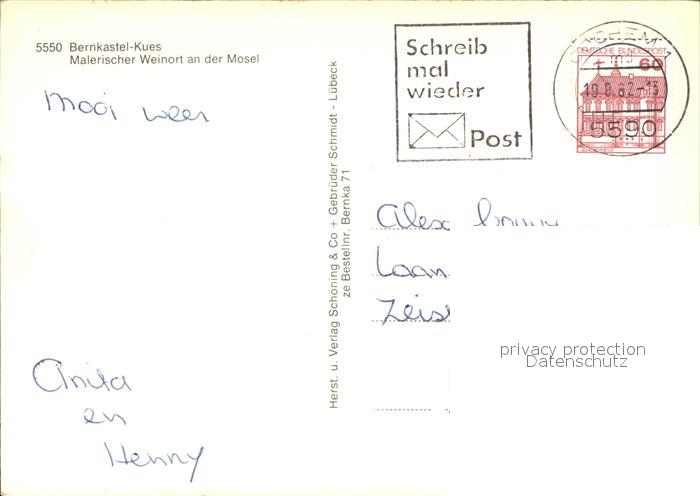 5550 Bernkastel-Kues
Malerischer Weinort an der Mosel
Mooi weer
Anita
en
Henny
Herst. u. Verlag Schöning & Co + Gebrüder Schmidt - Lübeck
ze Bestellnr. Bernka 71
Schreib
mal
wieder
Post
COCHEM
DEUTSCHE BUNDESPOST
60
19.8.82-13
5590
Alex
Laan
Zeis
privacy protection
Datenschutz